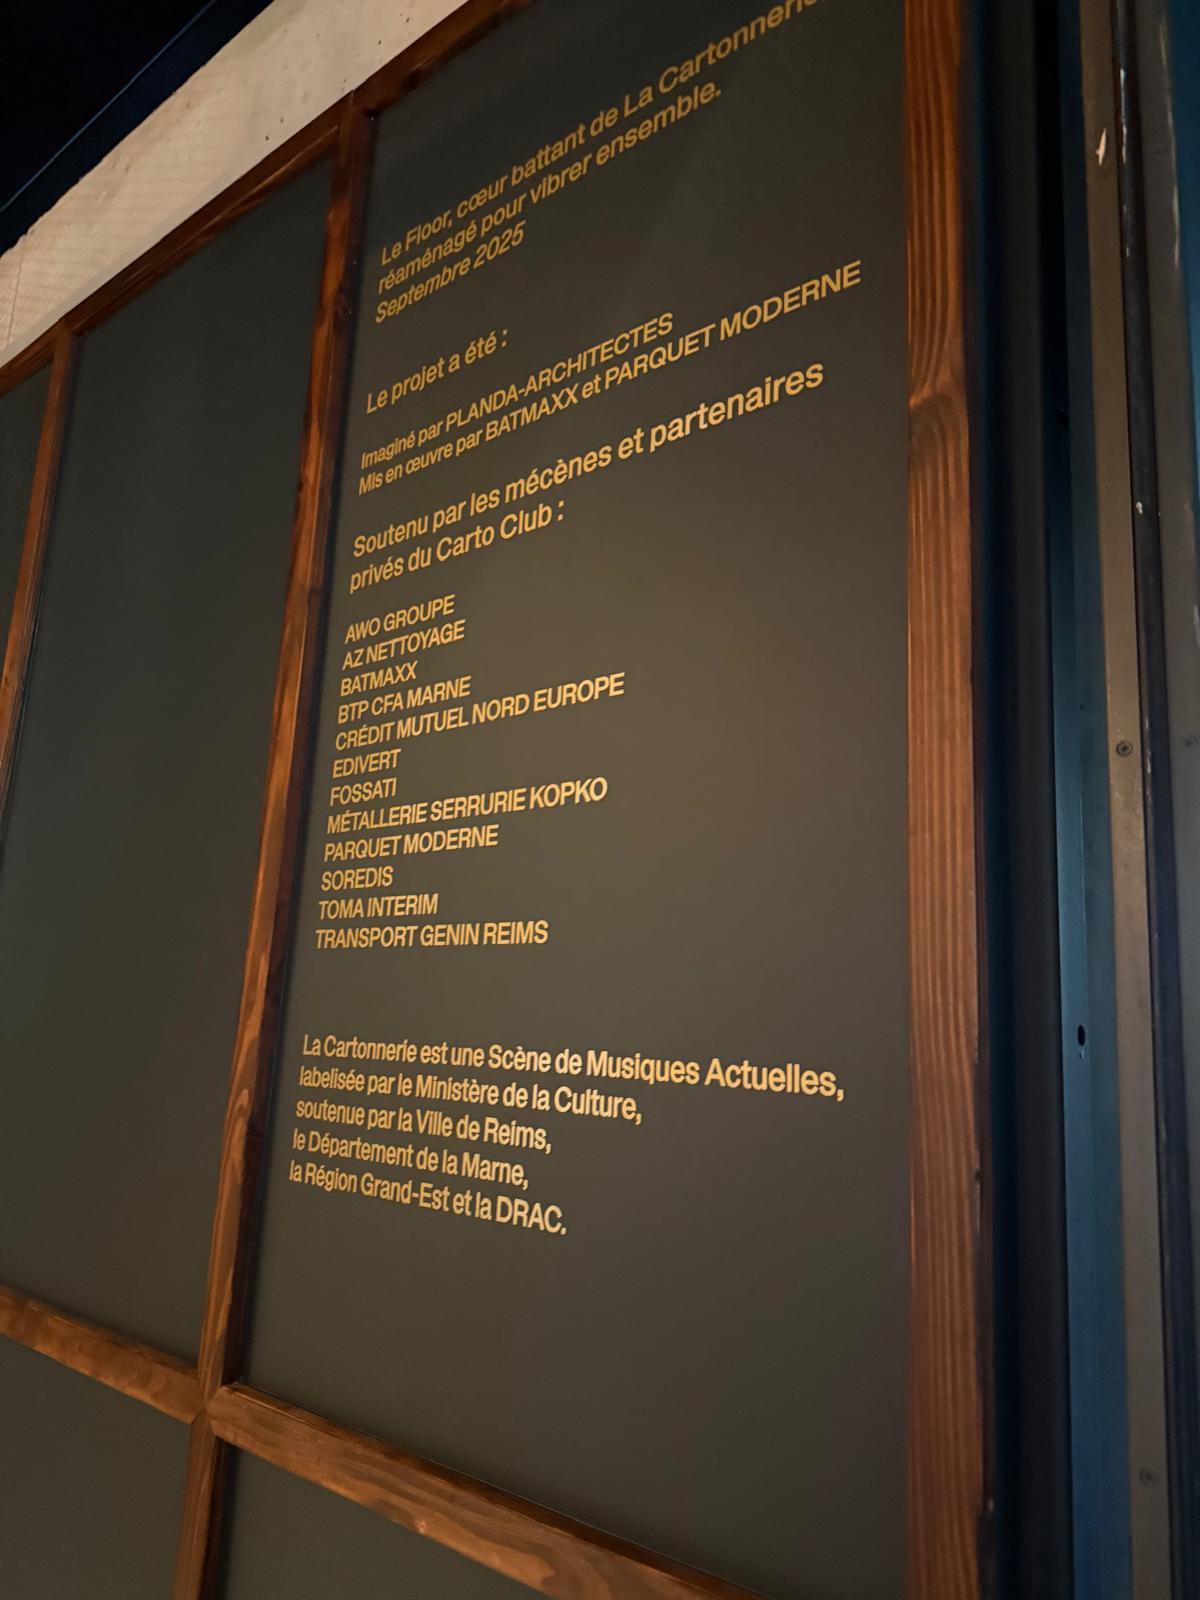 Le Floor, cœur battant de La Cartonnerie
réaménagé pour vibrer ensemble.
Septembre 2025
Le projet a été :
Imaginé par PLANDA-ARCHITECTES
Mis en œuvre par BATMAXX et PARQUET MODERNE
Soutenu par les mécènes et partenaires
privés du Carto Club :
AWO GROUPE
AZ NETTOYAGE
BATMAXX
BTP CFA MARNE
CRÉDIT MUTUEL NORD EUROPE
EDIVERT
FOSSATI
MÉTALLERIE SERRURIE KOPKO
PARQUET MODERNE
SOREDIS
TOMA INTERIM
TRANSPORT GENIN REIMS
La Cartonnerie est une Scène de Musiques Actuelles,
labelisée par le Ministère de la Culture,
soutenue par la Ville de Reims,
le Département de la Marne,
la Région Grand-Est et la DRAC.